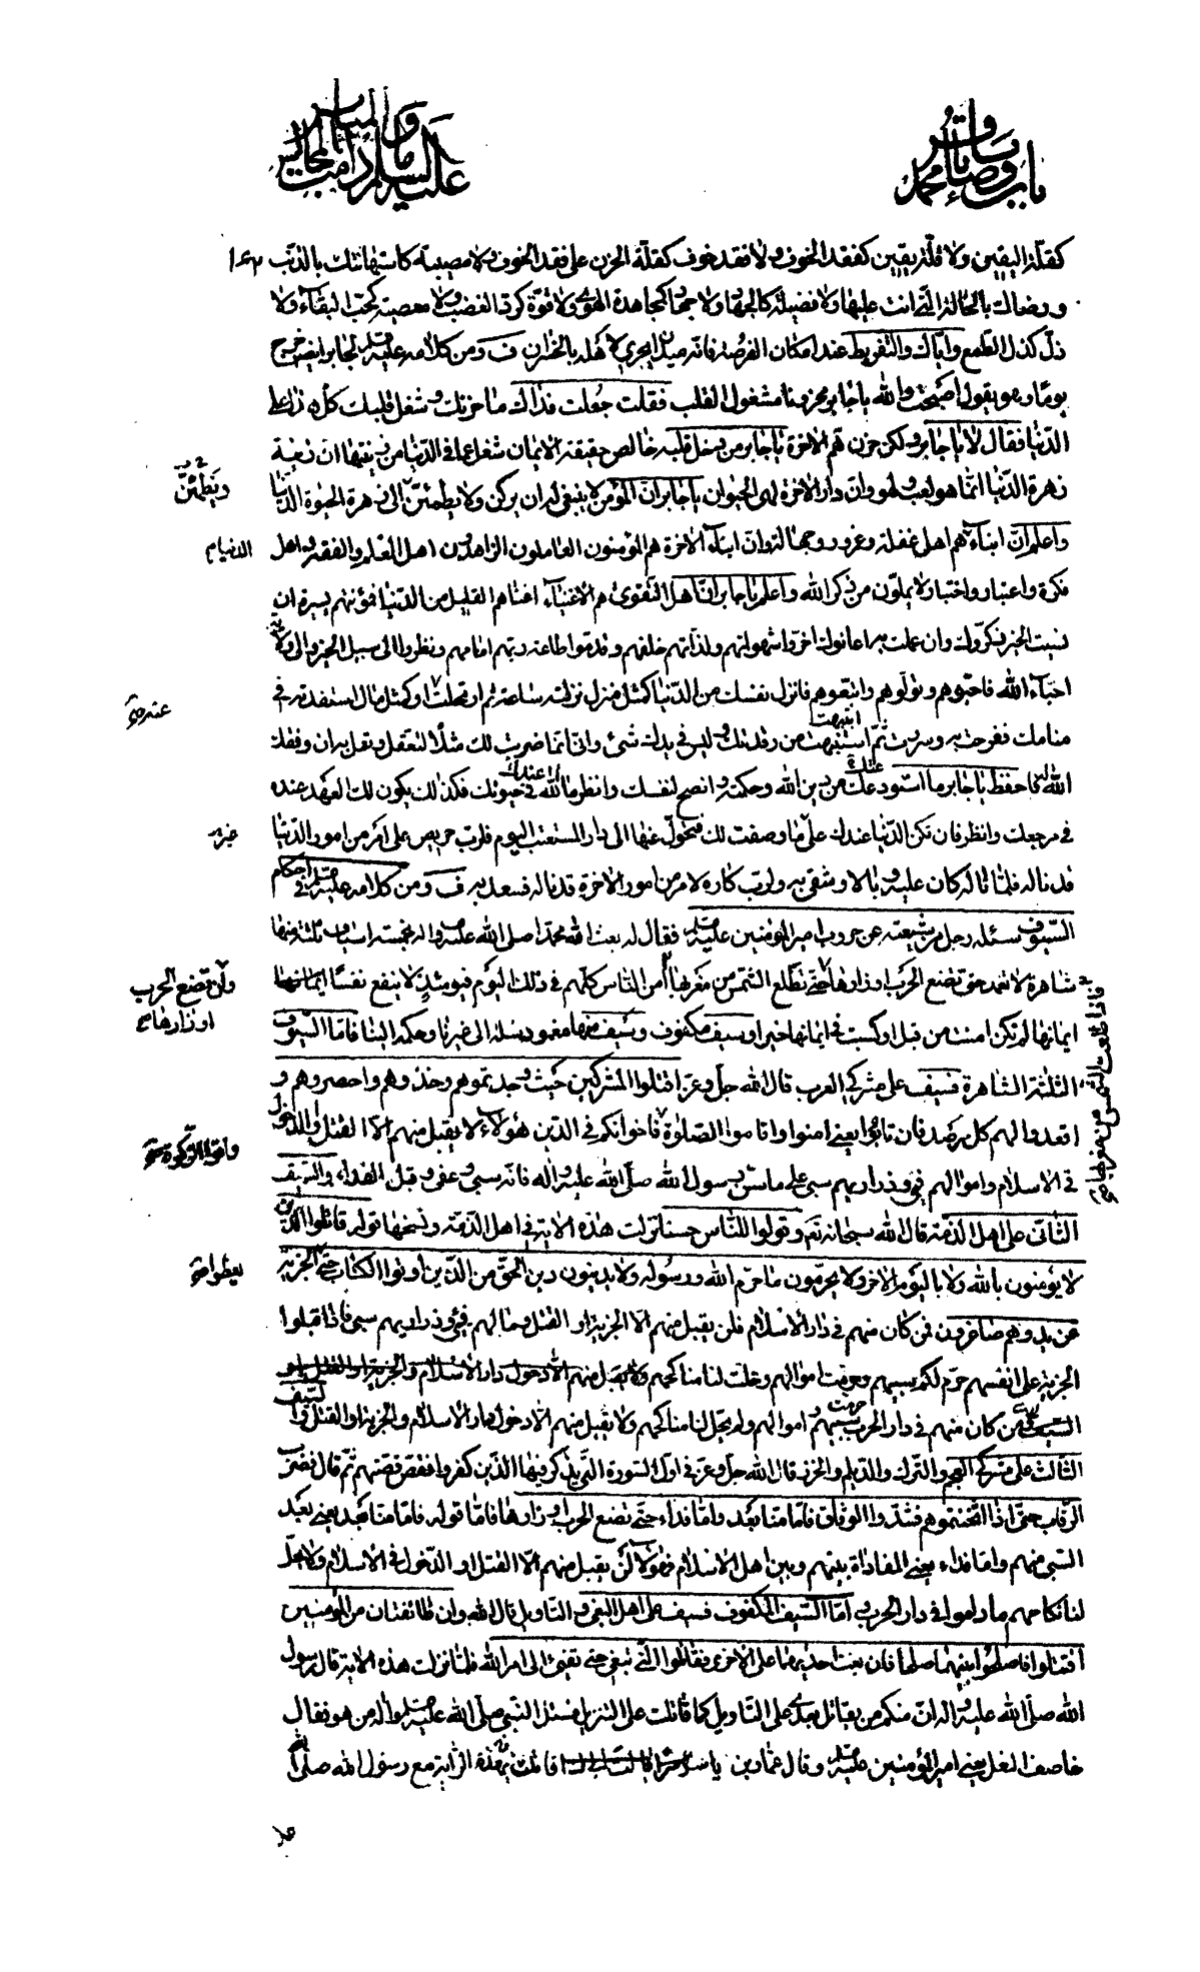 باب وصايا الباقر محمد
عليه السلام والمناسب
كقلة اليقين ولا قلة يقين كفقد الخوف ولا فقد خوف كقلة الحزن على فقد الخوف ولا مصيبة كاستهانتك بالذنب
ورضاك بالحالة التي انت عليها ولا فضيلة كالجهاد ولا جهاد كمجاهدة الهوى ولا قوة كرد الغضب ولا معصية كحب البقاء ولا
ذل كذل الطمع واياك والتفريط عند امكان الفرصة فانه ميدان يجري لاهله بالخسران ف ومن كلامه عليه لجابر ايضا خرج
يوما وهو يقول اصبحت والله يا جابر محزونا مشغول القلب فقلت جعلت فداك ما حزنك وشغل قلبك كل هذا على
الدنيا فقال لا يا جابر ولكن حزن هم الاخرة يا جابر من دخل قلبه خالص حقيقة الايمان شغل عما في الدنيا من زينتها ان زينة
زهرة الدنيا انما هو لعب ولهو وان دار الاخرة لهي الحيوان يا جابر ان المؤمن لا ينبغي له ان يركن ولا يطمئن الى زهرة الحيوة الدنيا
ويطمئن
واعلم ان ابناء هم اهل غفلة وغرور وجهالة وان ابناء الاخرة هم المؤمنون العاملون الزاهدون اهل العلم والفقه واهل
الدنيا م
فكرة واعتبار واختبار لا يملون من ذكر الله واعلم يا جابر ان اهل التقوى هم الاغنياء اغناهم القليل من الدنيا فمؤنتهم يسيرة ان
نسيت الخير ذكروك وان عملت به اعانوك اخروا شهواتهم ولذاتهم خلفهم وقدموا طاعة ربهم امامهم ونظروا الى سبيل الخير والى ولاية
احباء الله فاحبوهم وتولوهم واتبعوهم فانزل نفسك من الدنيا كمثل منزل نزلته ساعة ثم ارتحلت او كمثل مال استفدته في
عنه
منامك ففرحت به وسررت ثم استنبهت من رقدتك وليس في يدك شئ واني انما ضربت لك مثلا لتعقل وتعمل به ان وفقك
انتبهت
الله له فاحفظ يا جابر ما استودعتك من دين الله وحكمته وانصح لنفسك وانظر ما لله في حيوتك فكذلك يكون لك العهد عنده
عندك
في مرجعك وانظر فان تكن الدنيا عندك على ما وصفت لك فتحول عنها الى دار المستعتب اليوم فلرب حريص على امر من امور الدنيا
قد ناله فلما ناله كان عليه وبالا وشقي به ولرب كاره لامر من امور الاخرة قد ناله فسعد به ف ومن كلامه عليه في احكام
السيوف سئله رجل من شيعته عن حروب امير المؤمنين عليه فقال له بعث الله محمدا صلى الله عليه واله بخمسة اسياف ثلثة منها
شاهرة لا تغمد حتى تضع الحرب اوزارها حتى تطلع الشمس من مغربها امن الناس كلهم في ذلك اليوم فيومئذ لا ينفع نفسا ايمانها
ولن تضع الحرب
اوزارها م
فاذا طلعت الشمس من مغربها
ايمانها لم تكن امنت من قبل او كسبت في ايمانها خيرا وسيف مكفوف وسيف منها مغمود سله الى غيرنا وحكمه الينا فاما السيوف
الثلثة الشاهرة فسيف على مشركي العرب قال الله جل وعز اقتلوا المشركين حيث وجدتموهم وخذوهم واحصروهم و
اقعدوا لهم كل مرصد فان تابوا يعني امنوا واقاموا الصلوة فاخوانكم في الدين هؤلاء لا يقبل منهم الا القتل والدخول
واتوا الزكوة
في الاسلام واموالهم فئ وذراريهم سبي على ما سن رسول الله صلى الله عليه واله فانه سبى وعفى وقبل الفداء والسيف
الثاني على اهل الذمة قال الله سبحانه وقولوا للناس حسنا نزلت هذه الاية في اهل الذمة ونسخها قوله قاتلوا الذين
لا يؤمنون بالله ولا باليوم الاخر ولا يحرمون ما حرم الله ورسوله ولا يدينون دين الحق من الذين اوتوا الكتاب حتى الجزية
يعطوا
عن يد وهم صاغرون فمن كان منهم في دار الاسلام فلن يقبل منهم الا الجزية او القتل ومالهم فئ وذراريهم سبي فاذا قبلوا
الجزية على انفسهم حرم لكم سبيهم وحرمت اموالهم وحلت لنا مناكحهم ولا يقبل منهم الا دخول دار الاسلام والجزية او القتل
ومن كان منهم في دار الحرب سبيهم و اموالهم ولم يحل لنا مناكحهم ولا يقبل منهم الا دخول دار الاسلام والجزية او القتل والسيف
الثالث على مشركي العجم والترك والديلم والخزر قال الله جل وعز في اول السورة التي يذكر فيها الذين كفروا فقص قصتهم ثم قال فضرب
الرقاب حتى اذا اثخنتموهم فشدوا الوثاق فاما منا بعد واما فداء حتى تضع الحرب اوزارها فاما قوله فاما منا بعد يعني بعد
السبي منهم واما فداء يعني المفاداة بينهم وبين اهل الاسلام فهؤلاء لن يقبل منهم الا القتل او الدخول في الاسلام ولا يحل
لنا نكاحهم ما داموا في دار الحرب واما السيف المكفوف فسيف على اهل البغي والتاويل قال الله وان طائفتان من المؤمنين
اقتتلوا فاصلحوا بينهما صلحا فان بغت احديهما على الاخرى فقاتلوا التي تبغي حتى تفئ الى امر الله فلما نزلت هذه الاية قال رسول
الله صلى الله عليه واله ان منكم من يقاتل بعدي على التاويل كما قاتلت على التنزيل فسئل النبي صلى الله عليه واله من هو فقال
خاصف النعل يعني امير المؤمنين عليه وقال عمار بن ياسر قاتلت بهذه الراية مع رسول الله صلى الله